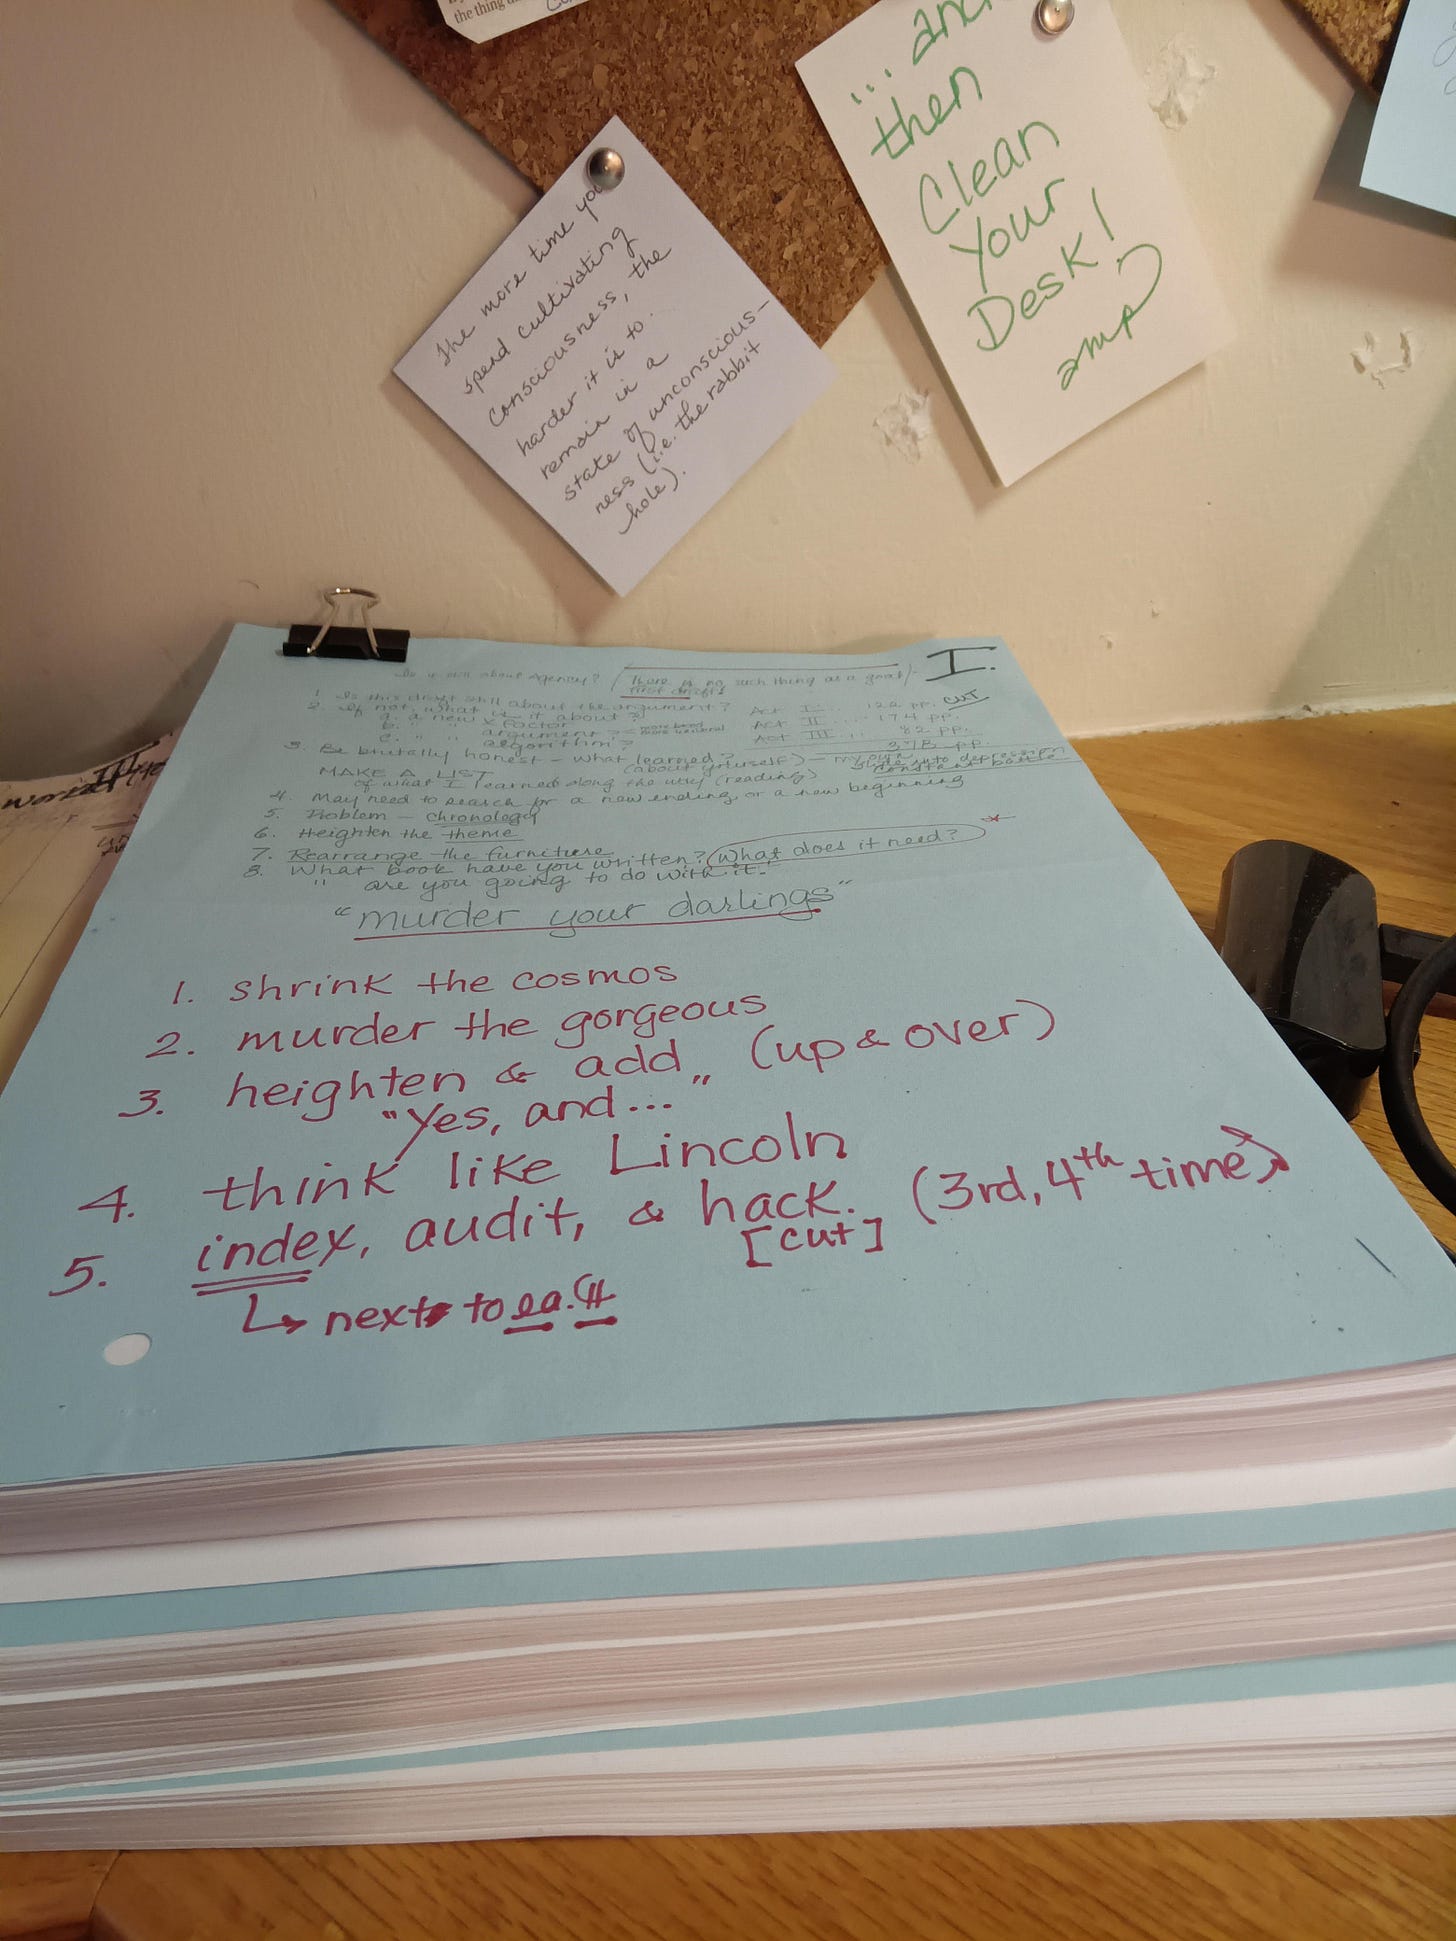 the thing
...and
then
Clean
Your
Desk!
amp
The more time you
spend cultivating
consciousness, the
harder it is to
remain in a
state of unconscious-
ness (i.e. the rabbit
hole).
I.
Is it still about Agency? (There is no such thing as a great
first draft)
1. Is this draft still about the argument?
2. If not, what is it about?
a. a new X Factor
b. " " argument? < more broad
more universal
c. " " algorithm?
Act I ... 122 pp. CUT
Act II ... 174 pp.
Act III ... 82 pp.
378 pp.
3. Be brutally honest - what learned? (about yourself) - my own slide into depression
constant battle
MAKE A LIST
of what I learned along the way (reading)
4. May need to search for a new ending, or a new beginning
5. Problem - chronology
6. Heighten the theme
7. Rearrange the furniture
8. What book have you written? What does it need?
" are you going to do with it?
"murder your darlings"
1. shrink the cosmos
2. murder the gorgeous
3. heighten & add (up & over)
"Yes, and..."
4. think like Lincoln
5. index, audit, & hack. (3rd, 4th time)
[cut]
↳ next to ea. ¶